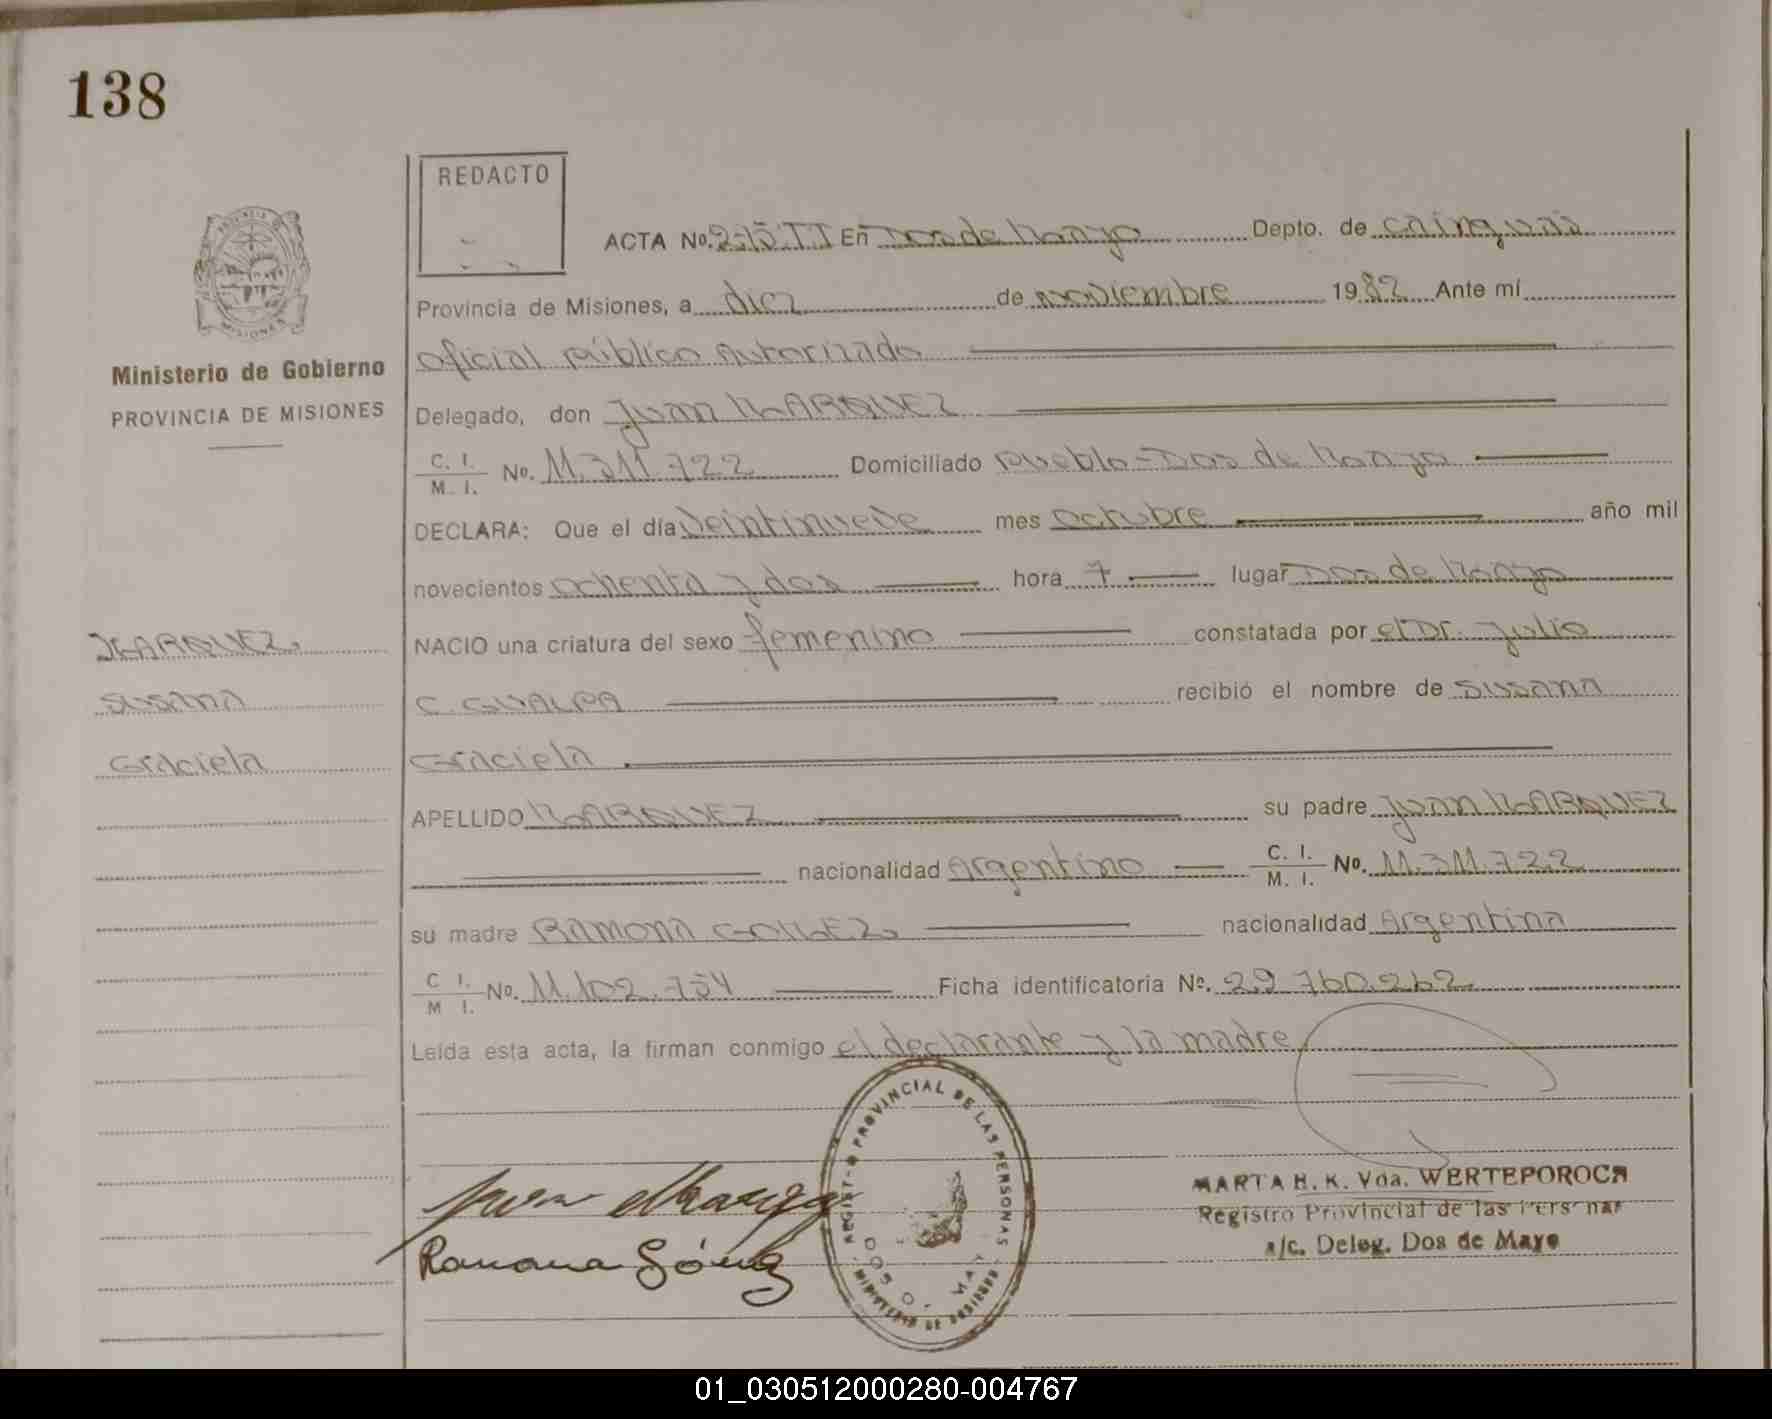 138
REDACTO
ACTA No. 215 II En Dos de Mayo Depto. de Cainguás
Provincia de Misiones, a diez de noviembre 1982 Ante mí
Oficial público Autorizado
Ministerio de Gobierno
PROVINCIA DE MISIONES
Delegado, don Juan MARQUEZ
C. I. M. I. No. 11.311.722 Domiciliado Pueblo-Dos de Mayo
DECLARA: Que el día veintinueve mes octubre año mil
novecientos ochenta y dos hora 7 lugar Dos de Mayo
MARQUEZ,
Susana
Graciela
NACIO una criatura del sexo femenino constatada por el Dr. Julio
C. GUALPA recibió el nombre de Susana
Graciela
APELLIDO MARQUEZ su padre Juan MARQUEZ
nacionalidad Argentino C. I. M. I. No. 11.311.722
su madre RAMONA GOMEZ nacionalidad Argentina
C I. M I. No. 11.102.754 Ficha identificatoria Nº. 29.760.262
Leída esta acta, la firman conmigo el declarante y la madre
REGIST. PROVINCIAL DE LAS PERSONAS
MINISTERIO DE GOBIERNO
DOS D. MAY
Ramona Gómez
MARTA H. K. Vda. WERTEPOROCH
Registro Provincial de las Personas
a/c. Deleg. Dos de Mayo
01_030512000280-004767